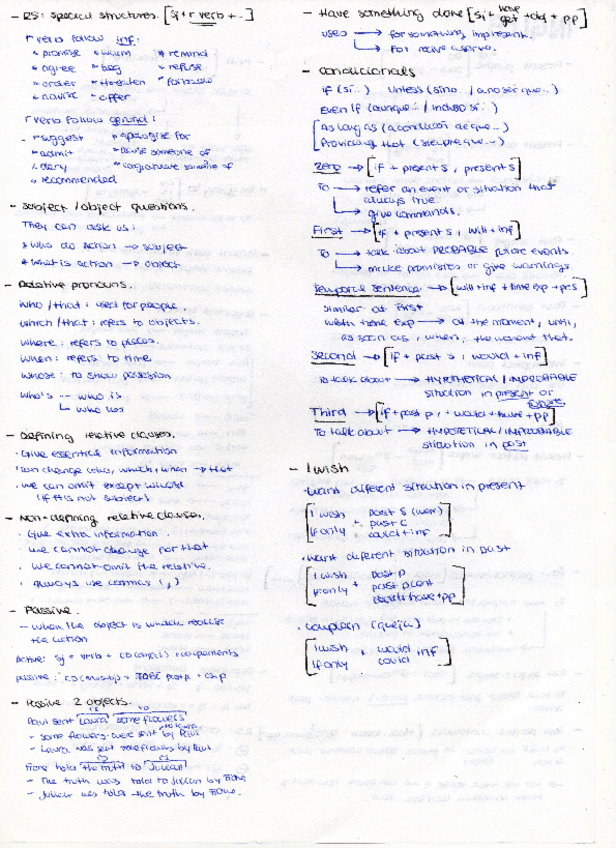 - RS: special structures. [Sj + r verb + ..]
r verb follow inf:
* promise * warn * remind
* agree * beg * refuse
* order * threaten
* advise * offer
r verb follow gerund:
* suggest * apologise for
* admit * accuse someone of
* deny * congratulate someone of
* recommended
- Subject / object questions.
They can ask us:
* Who do action → subject
* What is action → object
- Relative pronouns.
Who / that: used for people.
Which / that: refers to objects.
Where: refers to places.
When: refers to time
Whose: to show possession
Who's -- who is
who has
- Defining relative clauses.
· Give essential information
· can change who, which, when → that
· we can omit except whose
(if it is not subject)
- Non-defining relative clauses.
· Give extra information.
· we cannot change for that
· we cannot omit the relative.
· always use commas (,)
- Passive.
-- when the object is which receive
the action
Active: Sj + verb + CO (onsj) + components
passive: CO (onsj) + TOBE partp + cs.p
- Passive 2 objects.
Paul sent Laura some flowers
- Some flowers were sent by Paul
- Laura was sent some flowers by Paul
Fione told the truth to Julian
- The truth was told to Julian by Fione
- Julian was told the truth by Fione.
- Have something done [Sj + have get + obj + pp]
uses → for something important.
→ For active
- Condicionals
if (si..) Unless (sino.. / a no ser que..)
Even if (aunque.. / incluso si..)
As long as (a condicion de que..)
Providing that (siempre que..)
Zero → [if + present s, present s]
To → refer an event or situation that
always true.
→ give commands.
First → [if + present s, will + inf]
To → talk about PROBABLE future events.
→ make promises or give warnings.
Temporal Sentence → [will + inf + time exp + prs]
similar at First
with time Exp → at the moment, until,
as soon as, when, the moment that.
Second → [if + past s, would + inf]
To talk about → HYPOTHETICAL / IMPROBABLE
situation in present or
future
Third → [if + past p, + would + have + pp]
To talk about → HYPOTETICAL / IMPROBABLE
situation in past
- I wish
· want different situation in present
I wish / if only + past s (were)
past c
could + inf
· want different situation in past
I wish / if only + past p
past p cont
could have + pp
· complain (queja)
I wish / if only + would inf
could